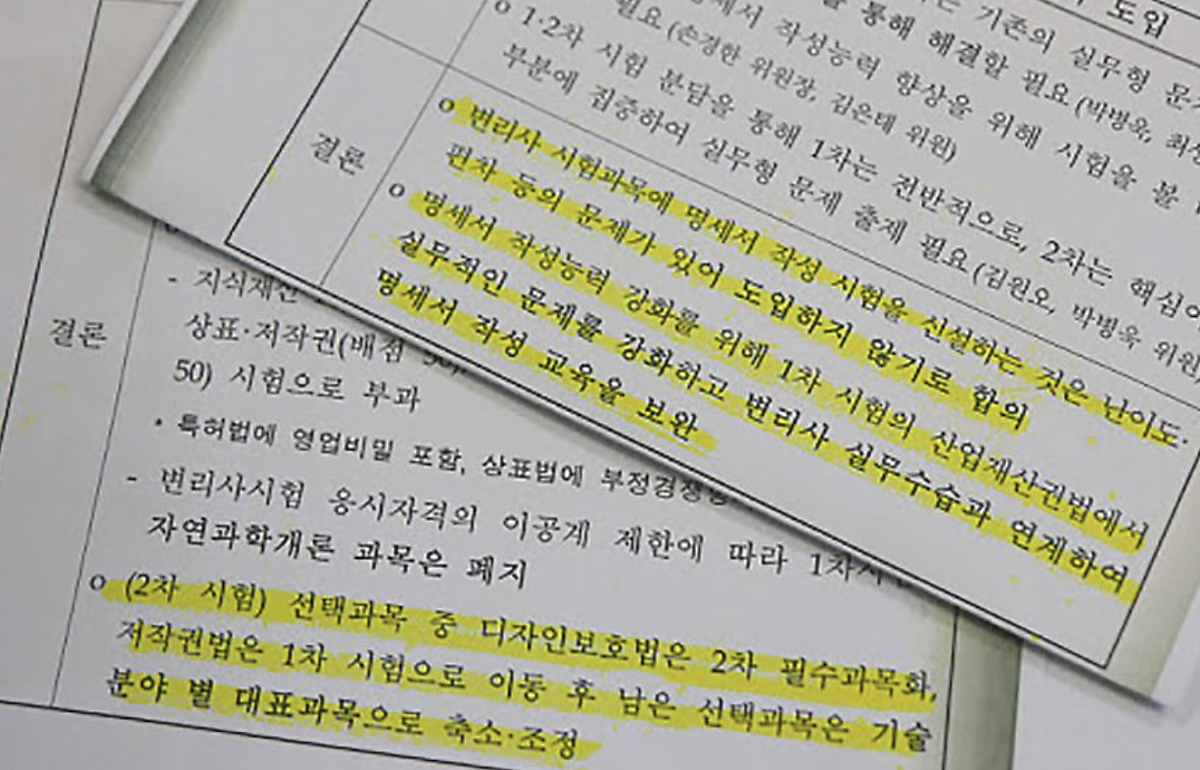 도입
는 기존의 실무형
을 통해 해결할 필요 (박병욱,
작성능력 향상을 위해 시험을 볼
필요 (손경한 위원장, 김은태 위원)
o 1·2차 시험 분담을 통해 1차는 전반적으로, 2차는 핵심
부분에 집중하여 실무형 문제 출제 필요 (김원오, 박병욱 위원
결론
o 변리사 시험과목에 명세서 작성 시험을 신설하는 것은 난이도·
편차 등의 문제가 있어 도입하지 않기로 합의
o 명세서 작성능력 강화를 위해 1차 시험의 산업재산권법에서
실무적인 문제를 강화하고 변리사 실무수습과 연계하여
명세서 작성 교육을 보완
결론
- 지식재산
상표·저작권(배점 50,
50) 시험으로 부과
* 특허법에 영업비밀 포함, 상표법에 부정경쟁
- 변리사시험 응시자격의 이공계 제한에 따라 1차
자연과학개론 과목은 폐지
o (2차 시험) 선택과목 중 디자인보호법은 2차 필수과목화,
저작권법은 1차 시험으로 이동 후 남은 선택과목은 기술
분야 별 대표과목으로 축소·조정